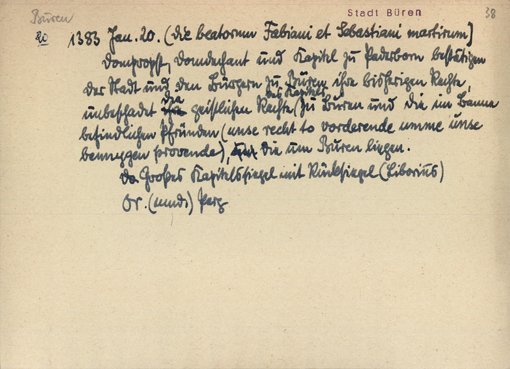 Büren
Stadt Büren
38
20
1383 Jan. 20. (die beatorum Fabiani et Sebastiani martirum)
Dompropst, Domdechant und Kapitel zu Paderborn bestätigen
der Stadt und den Bürgern zu Büren ihre bisherigen Rechte,
unbeschadet der geistlichen Rechte des Kapitels zu Büren und die im Banne
befindlichen Pfründen (unse recht to vorderende umme unse
bennyggen provende), die um Büren liegen.
Da. Großes Kapitelssiegel mit Rücksiegel (Liborius)
Or. (mnd.) Perg